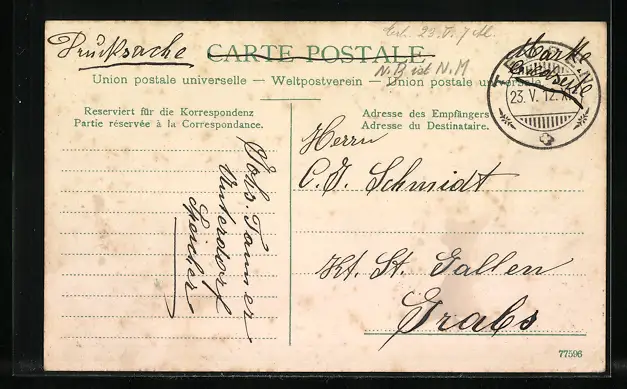 erh. 23. V. 7
Drucksache
CARTE POSTALE
Marke
N.B ist N.M
Union postale universelle — Weltpostverein — Union postale universelle
23. V. 12.
Reserviert für die Korrespondenz
Partie réservée à la Correspondance.
Adresse des Empfängers
Adresse du Destinataire.
Herrn
C. J. Schmidt
Kt. St. Gallen
Grabs
Johs. Tanner
Unterdorf
Speicher
77596